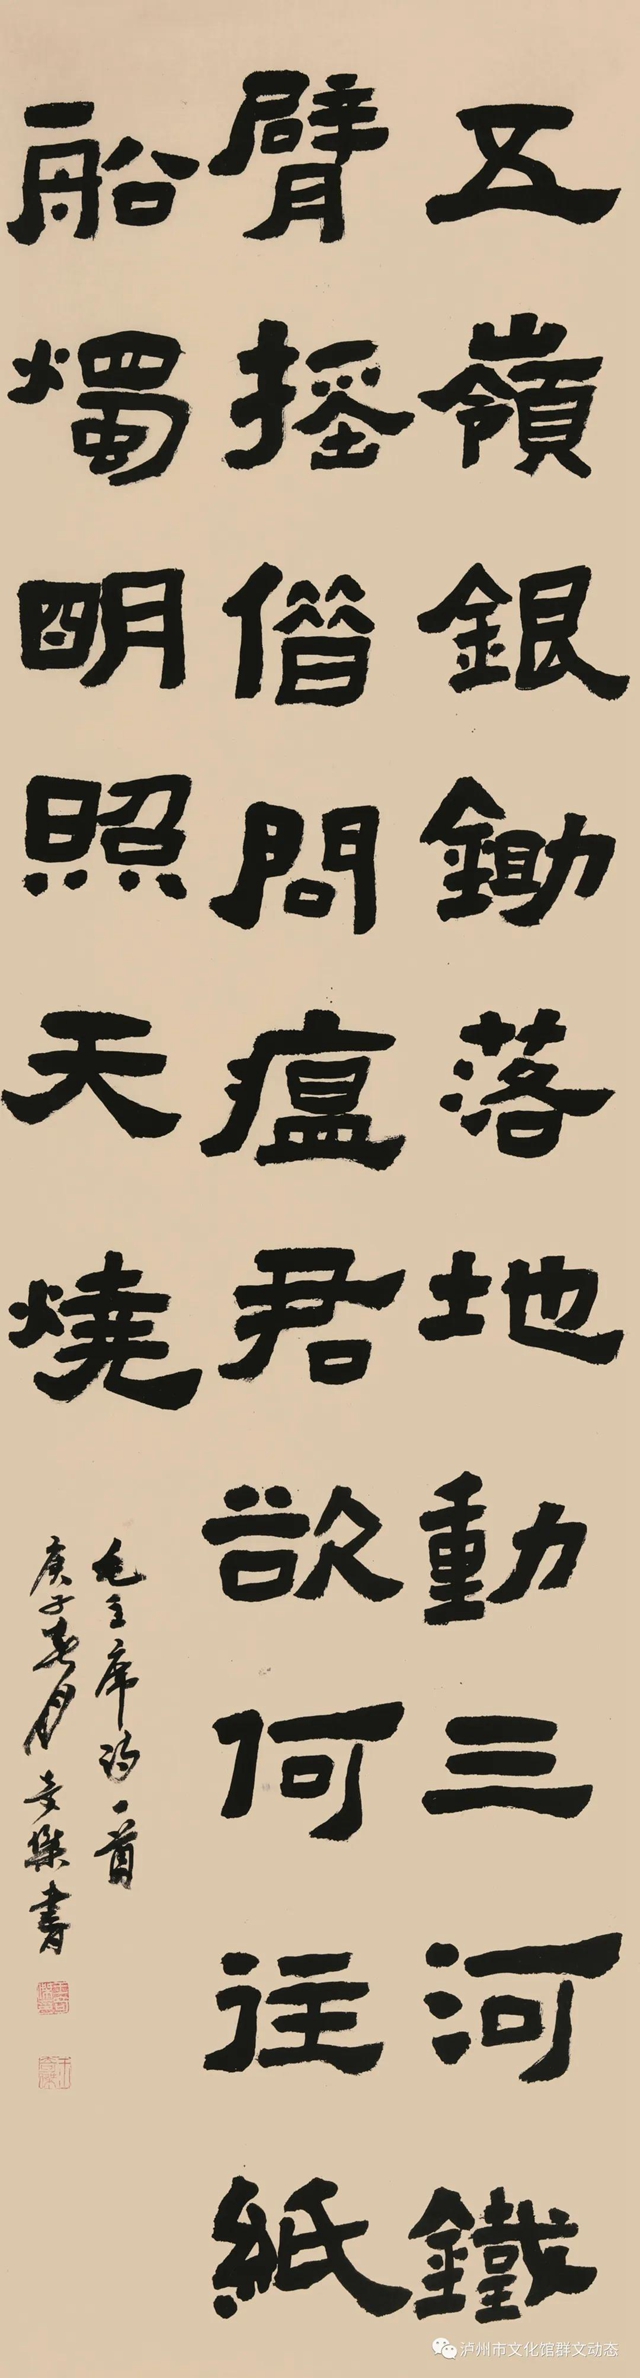 五嶺銀鋤落地動三河鐵
臂摇偕問瘟君欲何往紙
船燭明照天燒
毛主席詩一首
庚子春月奇傑書
泸州市文化馆群文动态